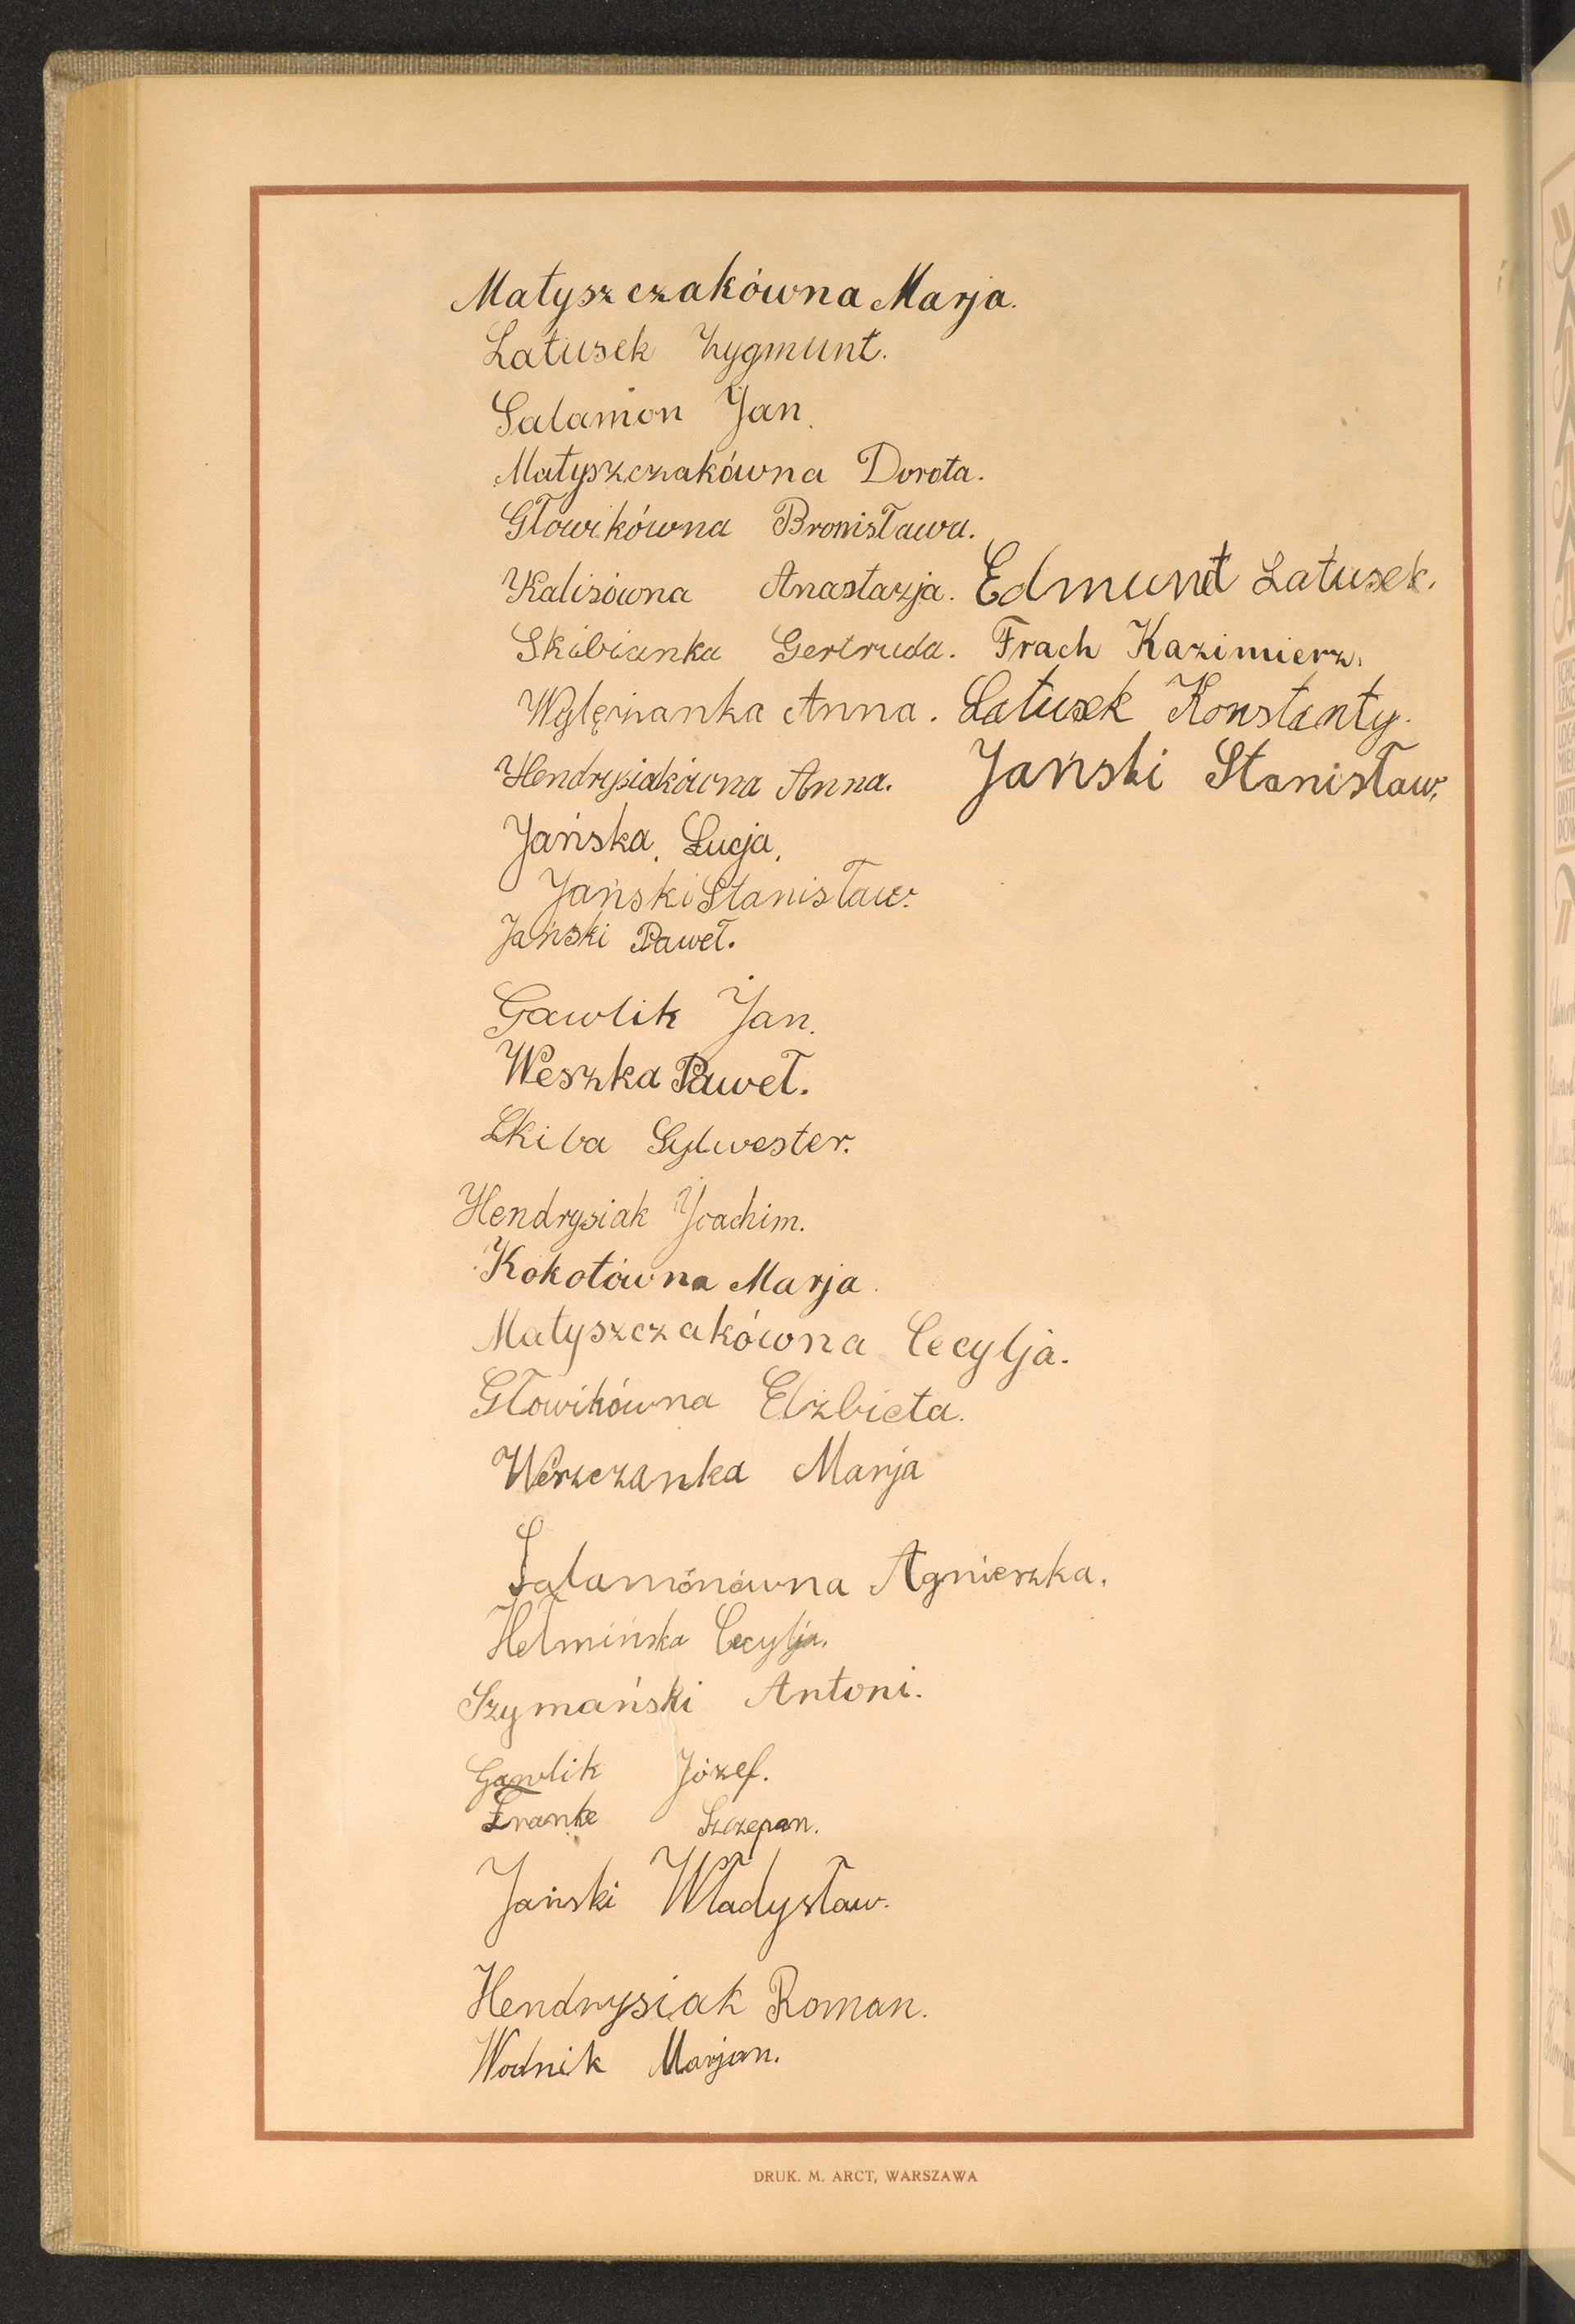 Matyszczakówna Marja.
Latusek Zygmunt.
Salamon Jan.
Matyszczakówna Dorota.
Głowikówna Bronisława.
Kalisówna Anastazja. Edmund Latusek.
Skibianka Gertruda. Frach Kazimierz.
Anna. Latusek Konstanty.
Hendrysiakówna Anna. Jański Stanisław.
Jańska Łucja.
Jański Stanisław.
Jański Paweł.
Gawlik Jan.
Weszka Paweł.
Skiba Sylwester.
Hendrysiak Joachim.
Kokotówna Marja.
Matyszczakówna Cecylja.
Głowikówna Elżbieta.
Weszczanka Marja
Salamonówna Agnieszka.
Hełmińska Cecylja.
Szymański Antoni.
Gawlik Józef.
Franke Szczepan.
Jański Władysław.
Hendrysiak Roman.
Wodnik Marjan.
DRUK. M. ARCT, WARSZAWA